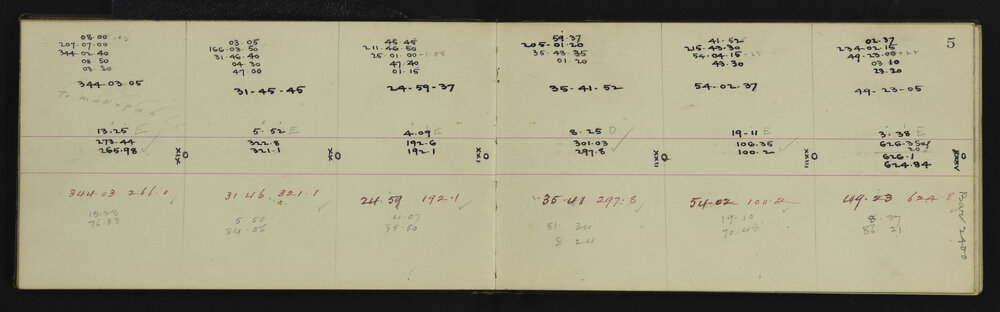 5
08.00
207.07.00
344.02.40
08.50
03.30
344.03.05
13.25 E
273.44
265.98
XIX
344.03 266.0
13.23
76.33
03.05
166.03.50
31.46.40
04.30
47.00
31-45-45
5.52 E
322.8
321.1
XX
31.46 321.1
5.50
84.06
45.45
211.46.50
25.01.00-1.05
47.40
01.15
24-59-37
4.09 E
192.6
192.1
XXI
24.59 192.1
4.07
85.50
59.37
205.01.20
35.43.35
01.20
35-41-52
8.25 D
301.03
297.8
XXII
35.41 297.8
81 34
8 24
41.52
215.43.30
54.04.15-23
43.30
54.02.37
19-11 E
106.35
100.2
XXIII
54.02 100.2
19-10
70.48
02.37
234.02.15
49.23.00+22
03.10
23.20
49-23-05
3.38 E
626.3 Sag
20
626.1
624.84
49.23 624.8
8.37
86 21
Bar 2400